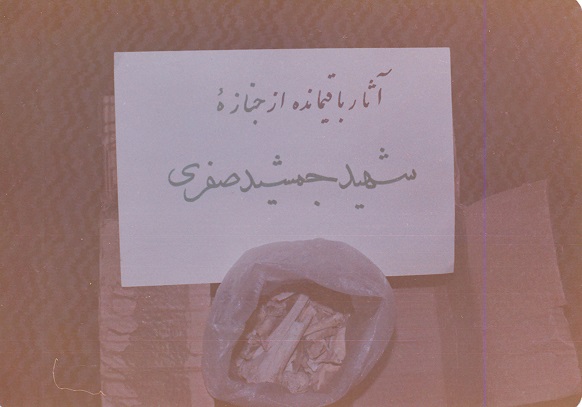 آثار باقیمانده از جنازهٔ
شهید جمشید صفری